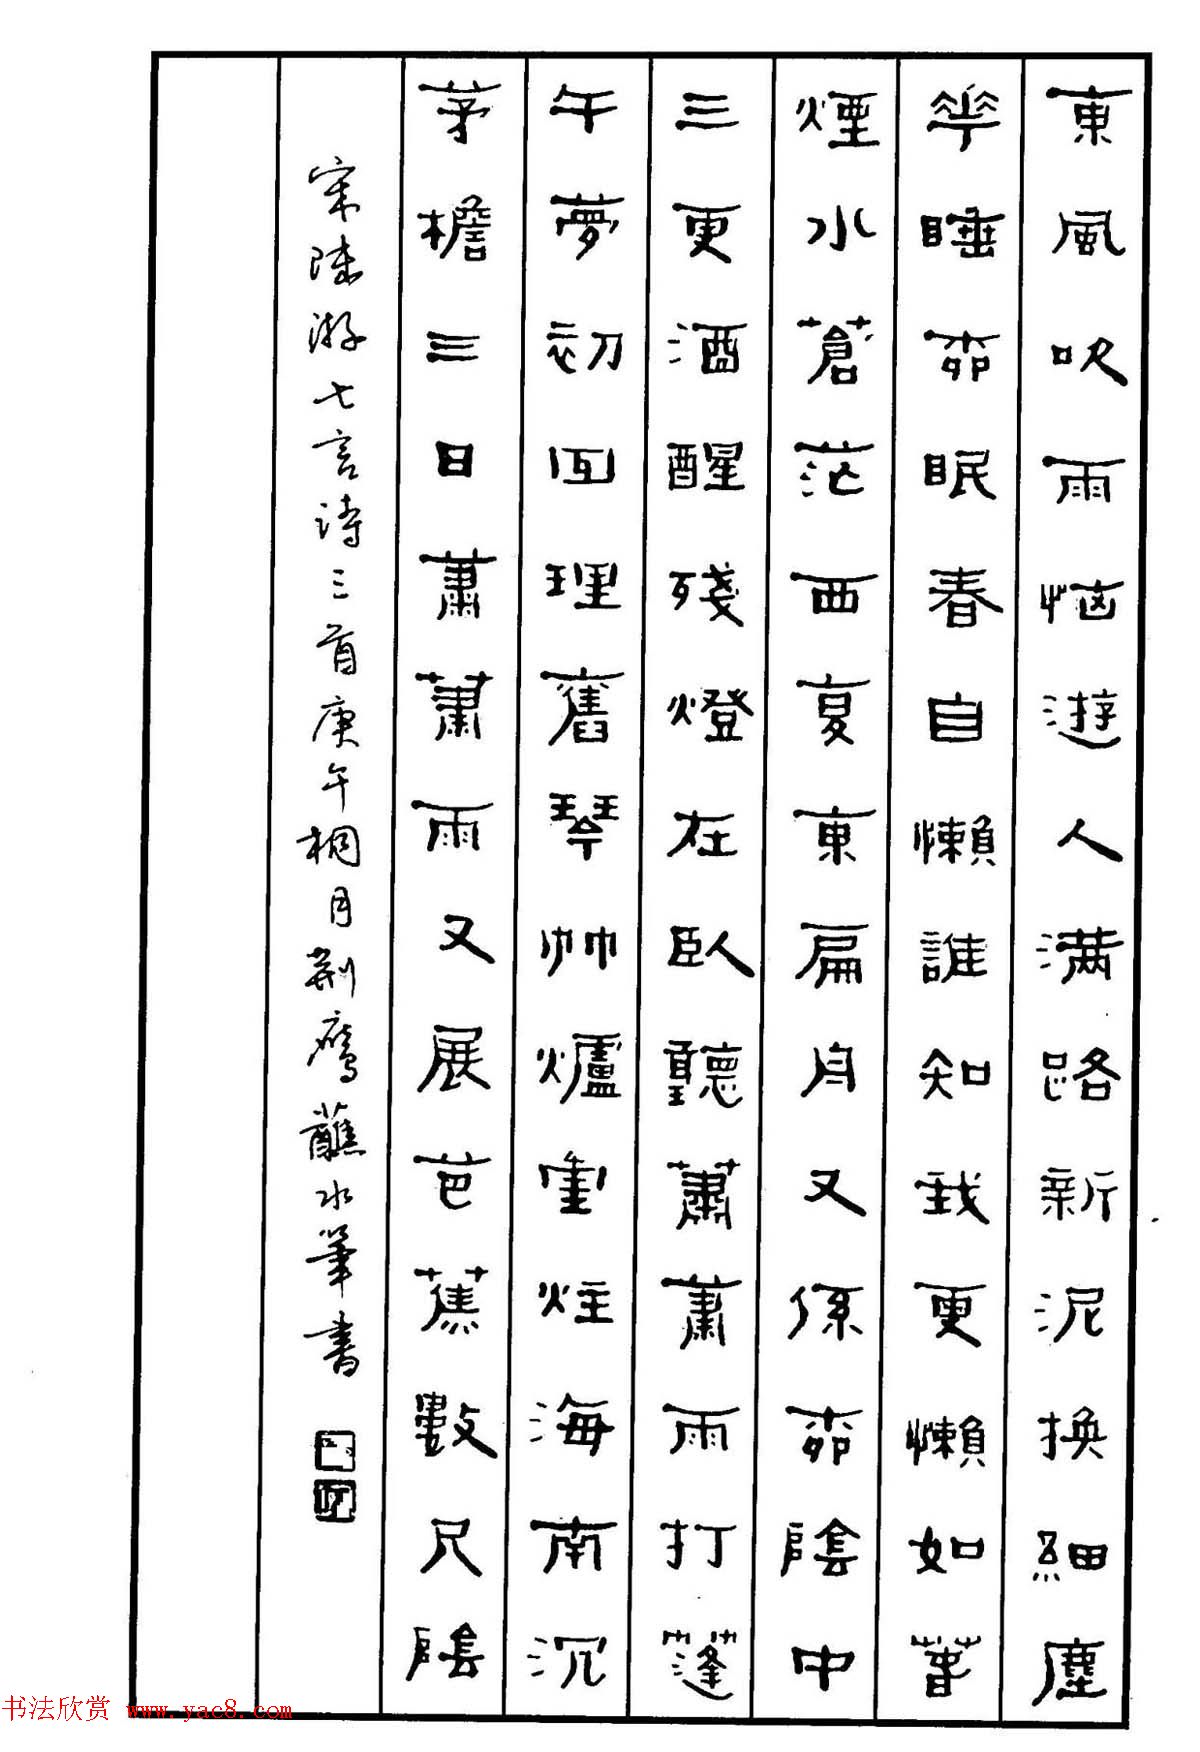 東風吹雨惱遊人満路新泥換細塵
華睡柳眠春自懶誰知我更懶如春
煙水蒼茫西復東扁舟又係柳陰中
三更酒醒殘燈在臥聽蕭蕭雨打蓬
午夢初回理舊琴竹爐重炷海南沉
茅檐三日蕭蕭雨又展芭蕉數尺陰
宋陸游七言詩三首庚午桐月荆鹰蘸水筆書
书法欣赏 www.yac8.com